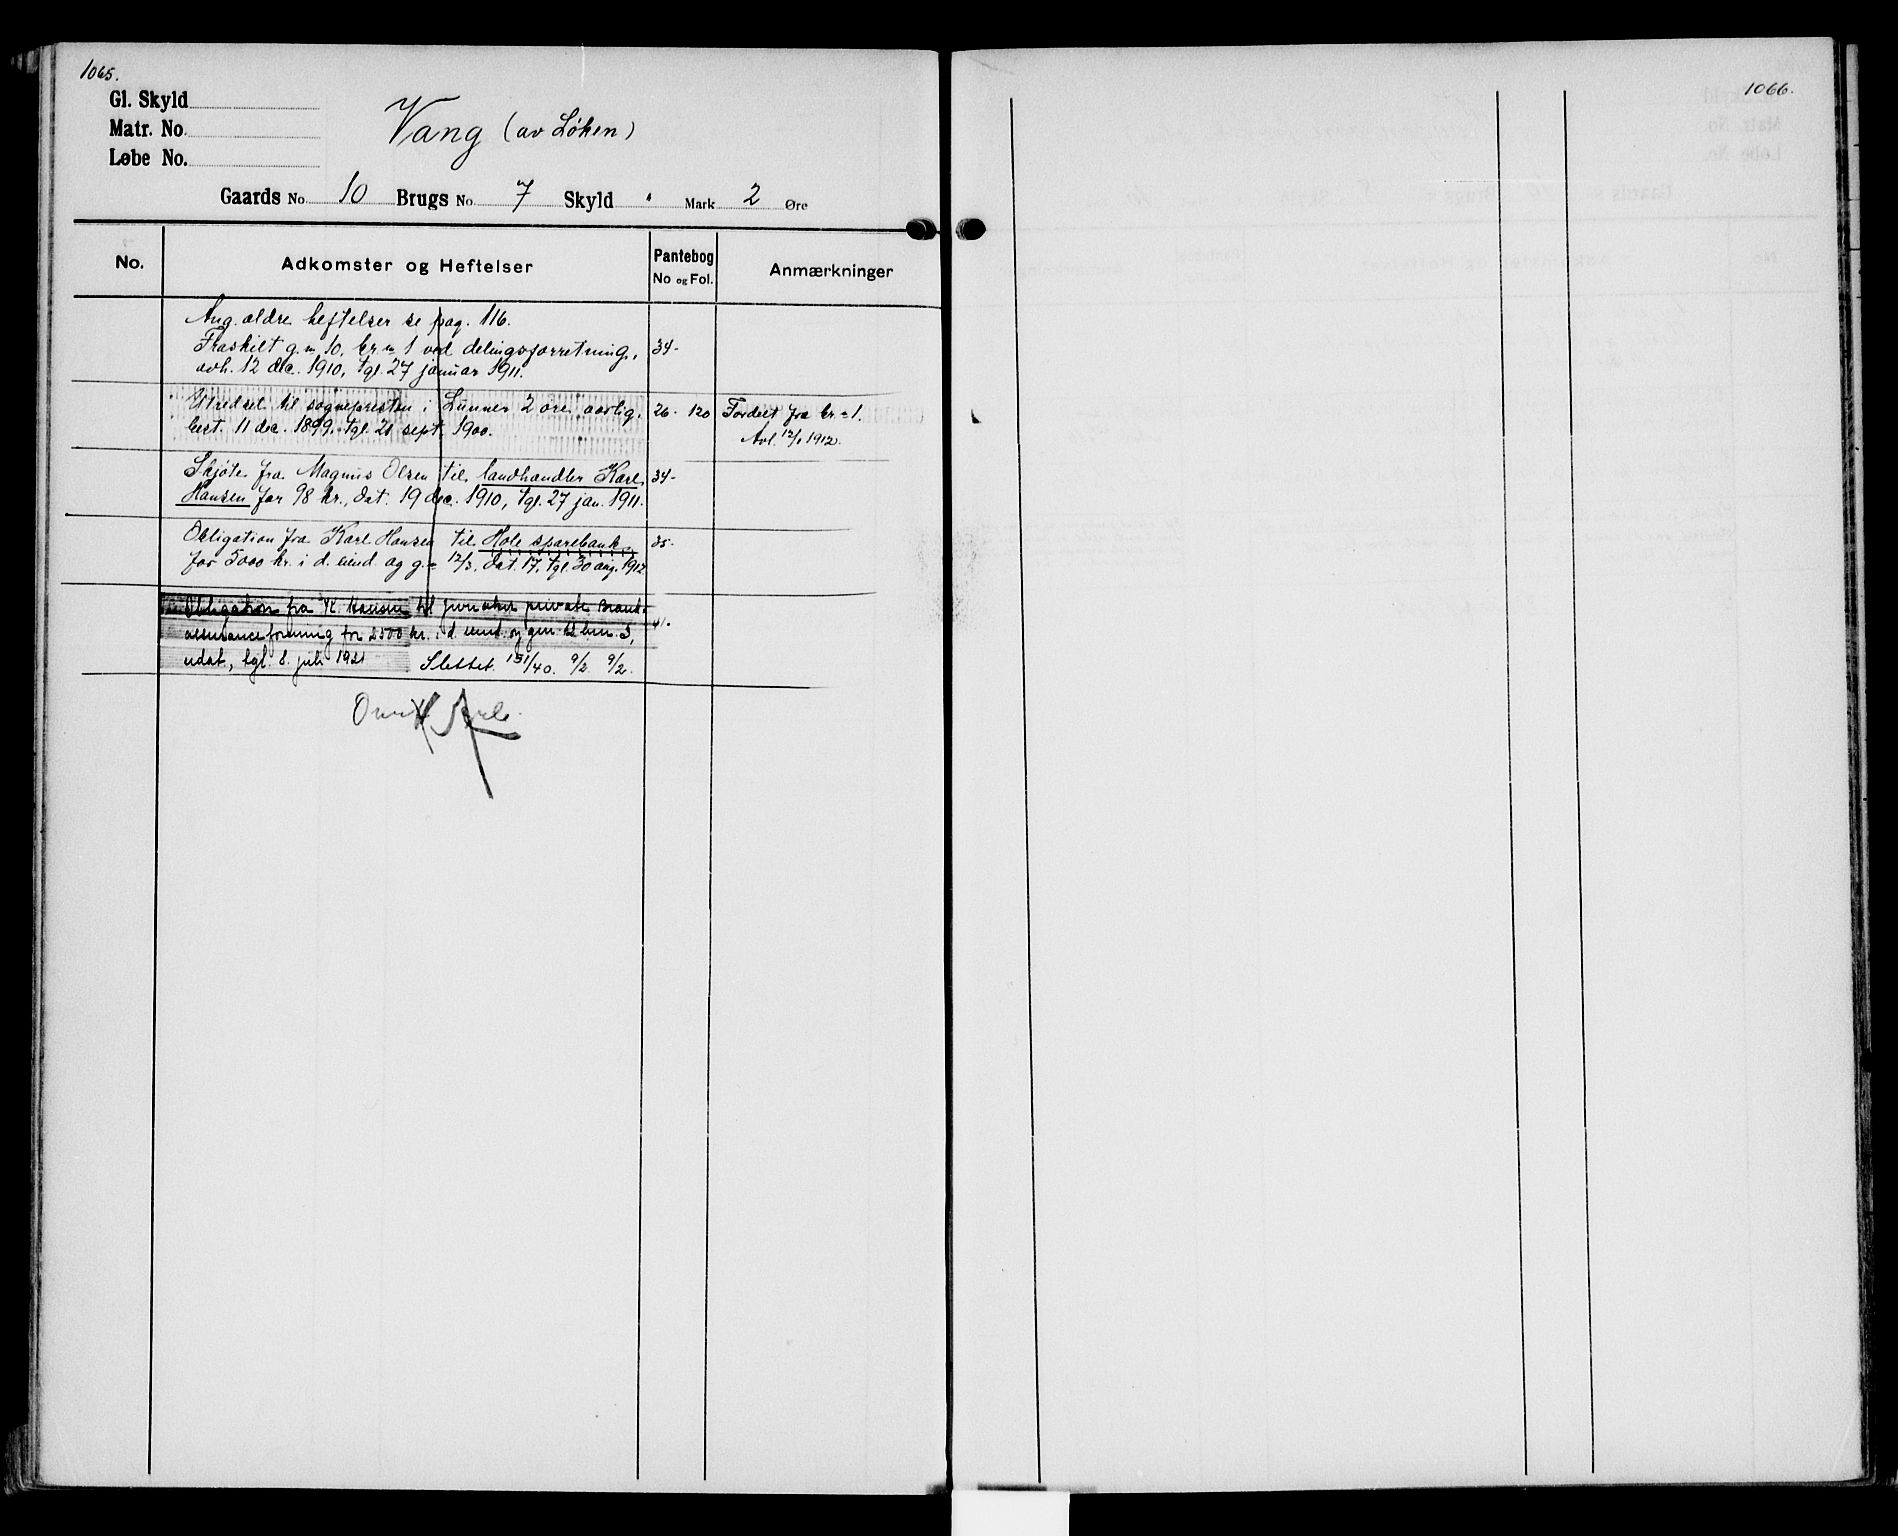 1065.
Gl. Skyld
Matr. No.
Løbe No.
Vang (av Løken)
Gaards No. 10 Brugs No. 7 Skyld " Mark 2 Øre
No. Adkomster og Heftelser Pantebog No og Fol. Anmærkninger
Ang. ældre heftelser se pag. 116.
Fraskilt g. no 10, br. no 1 ved delingsforretning, 34-
avh. 12 dec. 1910, tgl. 27 januar 1911.
Utredsel til sognepresten i Lunner 2 øre aarlig, 26- 120 Fordelt fra br. no 1.
best. 11 dec. 1899, tgl. 21 sept. 1900. Avl. 12/1 1912.
Skjøte fra Magnus Olsen til landhandler Karl 34-
Hansen for 98 kr., dat. 19 dec. 1910, tgl. 27 jan. 1911.
Obligation fra Karl Hansen til Hole sparebank 35-
for 5000 kr. i d. eiend. og g. no 12/3, dat. 17, tgl. 30 aug. 1912
Obligation fra K. Hansen til Jevnaker private Brand-
assuranceforening for 2500 kr. i d. eiend. og gn. 12 brn. 3, 41-
udat, tgl. 8. juli 1921 Slettet 151/40. 9/2 9/2.
1066.